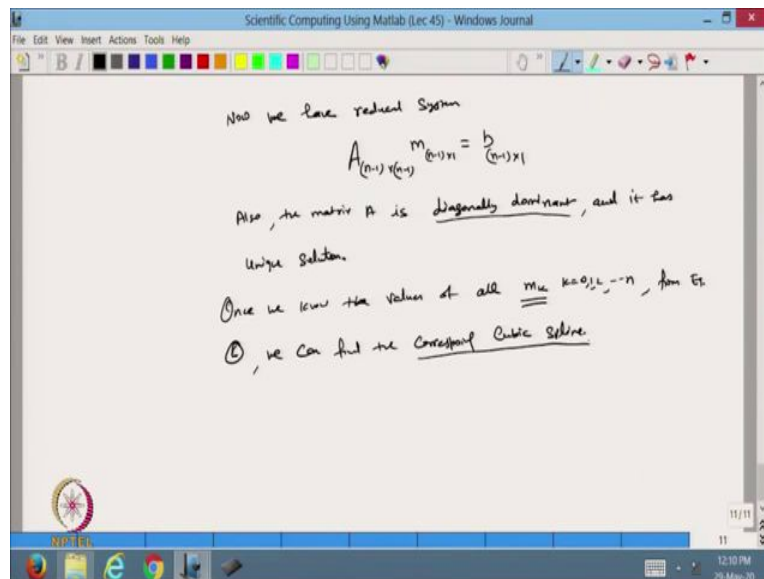 Scientific Computing Using Matlab (Lec 45) - Windows Journal
File Edit View Insert Actions Tools Help
Now we have reduced System
A(n-1)×(n-1) m(n-1)×1 = b(n-1)×1
Also, the matrix A is diagonally dominant, and it has
unique solution.
Once we know the values of all mk k=0,1,2,--n, from Eq.
, we can find the Corresponding Cubic Spline
NPTEL
11/11
11
12:10 PM
29-May-20